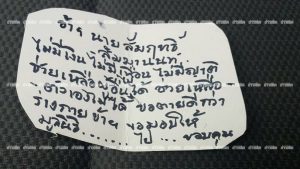 ข้าฯ นาย สัมฤทธิ์
ไม่มีเงิน ไม่มีเพื่อน ไม่มีญาติ
ช่วยเหลือผู้อื่นได้ ช่วยเหลือ
ตัวเองไม่ได้ ขอตายดีกว่า
ร่างกายข้าฯ ขอมอบให้
มูลนิธิ
ขอบคุณ